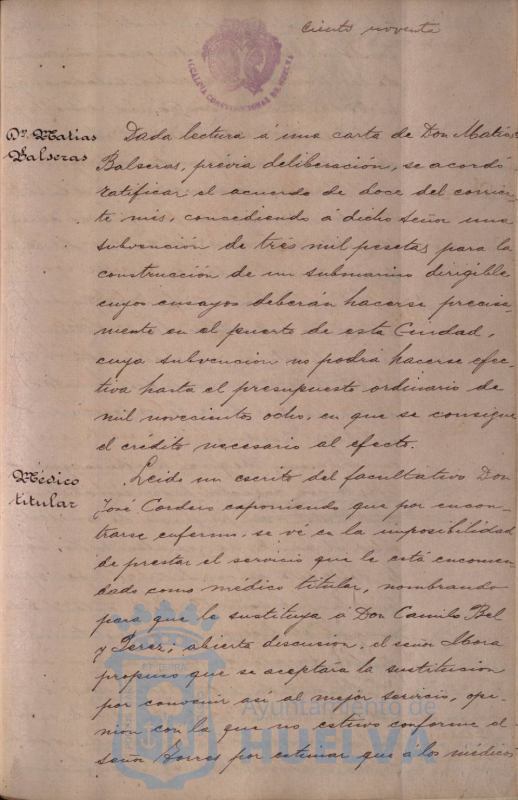 Ciento noventa
ALCALDIA CONSTITUCIONAL DE HUELVA
Dn. Matías
Balseras
Dada lectura á una carta de Don Matías
Balseras, prévia deliberación, se acordó
ratificar el acuerdo de doce del corrien-
te mes, concediendo á dicho señor una
subvención de tres mil pesetas para la
construcción de un submarino dirigible
cuyos ensayos deberán hacerse precisa-
mente en el puerto de esta Ciudad,
cuya subvencion no podrá hacerse efec-
tiva hasta el presupuesto ordinario de
mil novecientos ocho, en que se consigne
el crédito necesario al efecto.
Médico
titular
Leido un escrito del facultativo Don
José Cordero exponiendo que por encon-
trarse enfermo, se vé en la imposibilidad
de prestar el servicio que le está encomen-
dado como médico titular, nombrando
para que le sustituya á Don Camilo Bel
y Perez; abierta discusion, el señor Mora
propuso que se aceptára la sustitucion
por convenir así al mejor servicio, opi-
nion con la que no estuvo conforme el
señor Borres por estimar que á los médicos
Ayuntamiento de
HUELVA